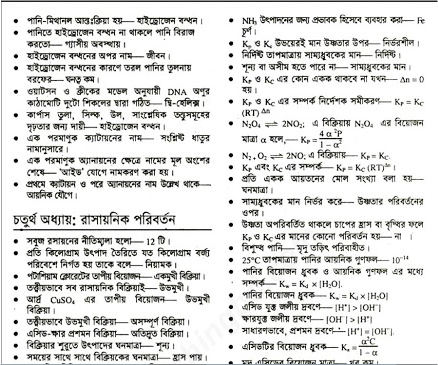 পানি-মিথানল আন্তঃক্রিয়া হয়— হাইড্রোজেন বন্ধন।
পানিতে হাইড্রোজেন বন্ধন না থাকলে পানি বিরাজ
করতো— গ্যাসীয় অবস্থায়।
হাইড্রোজেন বন্ধনের অপর নাম— জীবন।
হাইড্রোজেন বন্ধনের কারণে তরল পানির তুলনায়
বরফের— ঘনত্ব কম।
ওয়াটসন ও ক্রীকের মডেল অনুযায়ী DNA অণুর
কাঠামোটি দুটো শিকলের দ্বারা গঠিত— দ্বি-হেলিক্স।
কার্পাস তুলা, সিল্ক, উল, সাংশ্লেষিক তন্তুসমূহের
দৃঢ়তার জন্য দায়ী— হাইড্রোজেন বন্ধন।
এক পরমাণুক ক্যাটায়নের নাম— সংশ্লিষ্ট ধাতুর
নামানুসারে।
এক পরমাণুক অ্যানায়নের ক্ষেত্রে নামের মূল অংশের
শেষে— 'আইড' যোগে নামকরণ করা হয়।
প্রথমে ক্যাটায়ন ও পরে অ্যানায়নের নাম উল্লেখ থাকে—
আয়নিক যৌগে।
চতুর্থ অধ্যায়: রাসায়নিক পরিবর্তন
সবুজ রসায়নের নীতিমালা হলো— 12 টি।
প্রতি কিলোগ্রাম উৎপাদ তৈরিতে যত কিলোগ্রাম বর্জ্য
পরিবেশে নির্গত হয় তাকে বলে— নিয়ামক।
পটাশিয়াম ক্লোরেটের তাপীয় বিয়োজন— একমুখী বিক্রিয়া।
তত্ত্বীয়ভাবে সব রাসায়নিক বিক্রিয়াই— উভমুখী।
আর্দ্র CuSO₄ এর তাপীয় বিয়োজন— উভমুখী
বিক্রিয়া।
তত্ত্বীয়ভাবে উভমুখী বিক্রিয়া— অসম্পূর্ণ বিক্রিয়া।
এসিড-ক্ষার প্রশমন বিক্রিয়া— অতিদ্রুত বিক্রিয়া।
বিক্রিয়ার শুরুতে উৎপাদের ঘনমাত্রা— শূন্য।
সময়ের সাথে সাথে বিক্রিয়কের ঘনমাত্রা— হ্রাস পায়।
NH₃ উৎপাদনের জন্য প্রভাবক হিসেবে ব্যবহার করা— Fe
চূর্ণ।
Kₚ ও Kₓ উভয়েরই মান উষ্ণতার উপর— নির্ভরশীল।
নির্দিষ্ট তাপমাত্রায় সাম্যধ্রুবকের মান— নির্দিষ্ট।
শূন্য বা অসীম হতে পারে না— সাম্যধ্রুবকের মান।
Kₚ ও K_C এর কোন একক থাকবে না যখন— Δn = 0
হয়।
Kₚ ও K_C এর সম্পর্ক নির্দেশক সমীকরণ— Kₚ = K_C
(RT)^Δn
N₂O₄ ⇌ 2NO₂; এ বিক্রিয়ায় N₂O₄ এর বিয়োজন
মাত্রা α হলে, Kₚ = 4α²P / 1 − α²
N₂, O₂ ⇌ 2NO; এ বিক্রিয়ায়— Kₚ = K_C.
Kₚ এবং K_C এর সম্পর্ক— Kₚ = K_C (RT)^Δn।
প্রতি একক আয়তনের মোল সংখ্যা বলা হয়—
ঘনমাত্রা।
সাম্যধ্রুবকের মান নির্ভর করে— উষ্ণতার পরিবর্তনের
ওপর।
উষ্ণতা অপরিবর্তিত থাকলে চাপের হ্রাস বা বৃদ্ধির ফলে
Kₚ ও K_C এর মানের কোনো পরিবর্তন হয়— না।
বিশুদ্ধ পানি— মৃদু তড়িৎ পরিবাহী।
25°C তাপমাত্রায় পানির আয়নিক গুণফল— 10⁻¹⁴
পানির বিয়োজন ধ্রুবক ও আয়নিক গুণফল এর মধ্যে
সম্পর্ক— K_w = K_d × [H₂O].
পানির বিয়োজন ধ্রুবক— K_w = K_d × [H₂O]
এসিড যুক্ত জলীয় দ্রবণে— [H⁺] > [OH⁻]
ক্ষারযুক্ত জলীয় দ্রবণে— [OH⁻] > [H⁺]
সাধারণভাবে, প্রশমন দ্রবণে— [H⁺] = [OH⁻].
এসিডটির বিয়োজন ধ্রুবক— Kₐ = α²C / 1 − α
মৃদু এসিডের বিয়োজন মাত্রা— খুব কম।